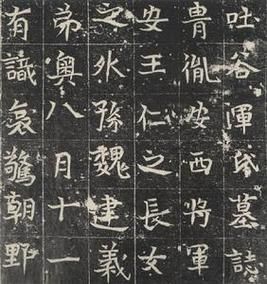 吐谷渾氏墓誌
冑胤安西將軍
安王仁之長女
之外孫魏建義
奧八月十一
有識哀驚朝野